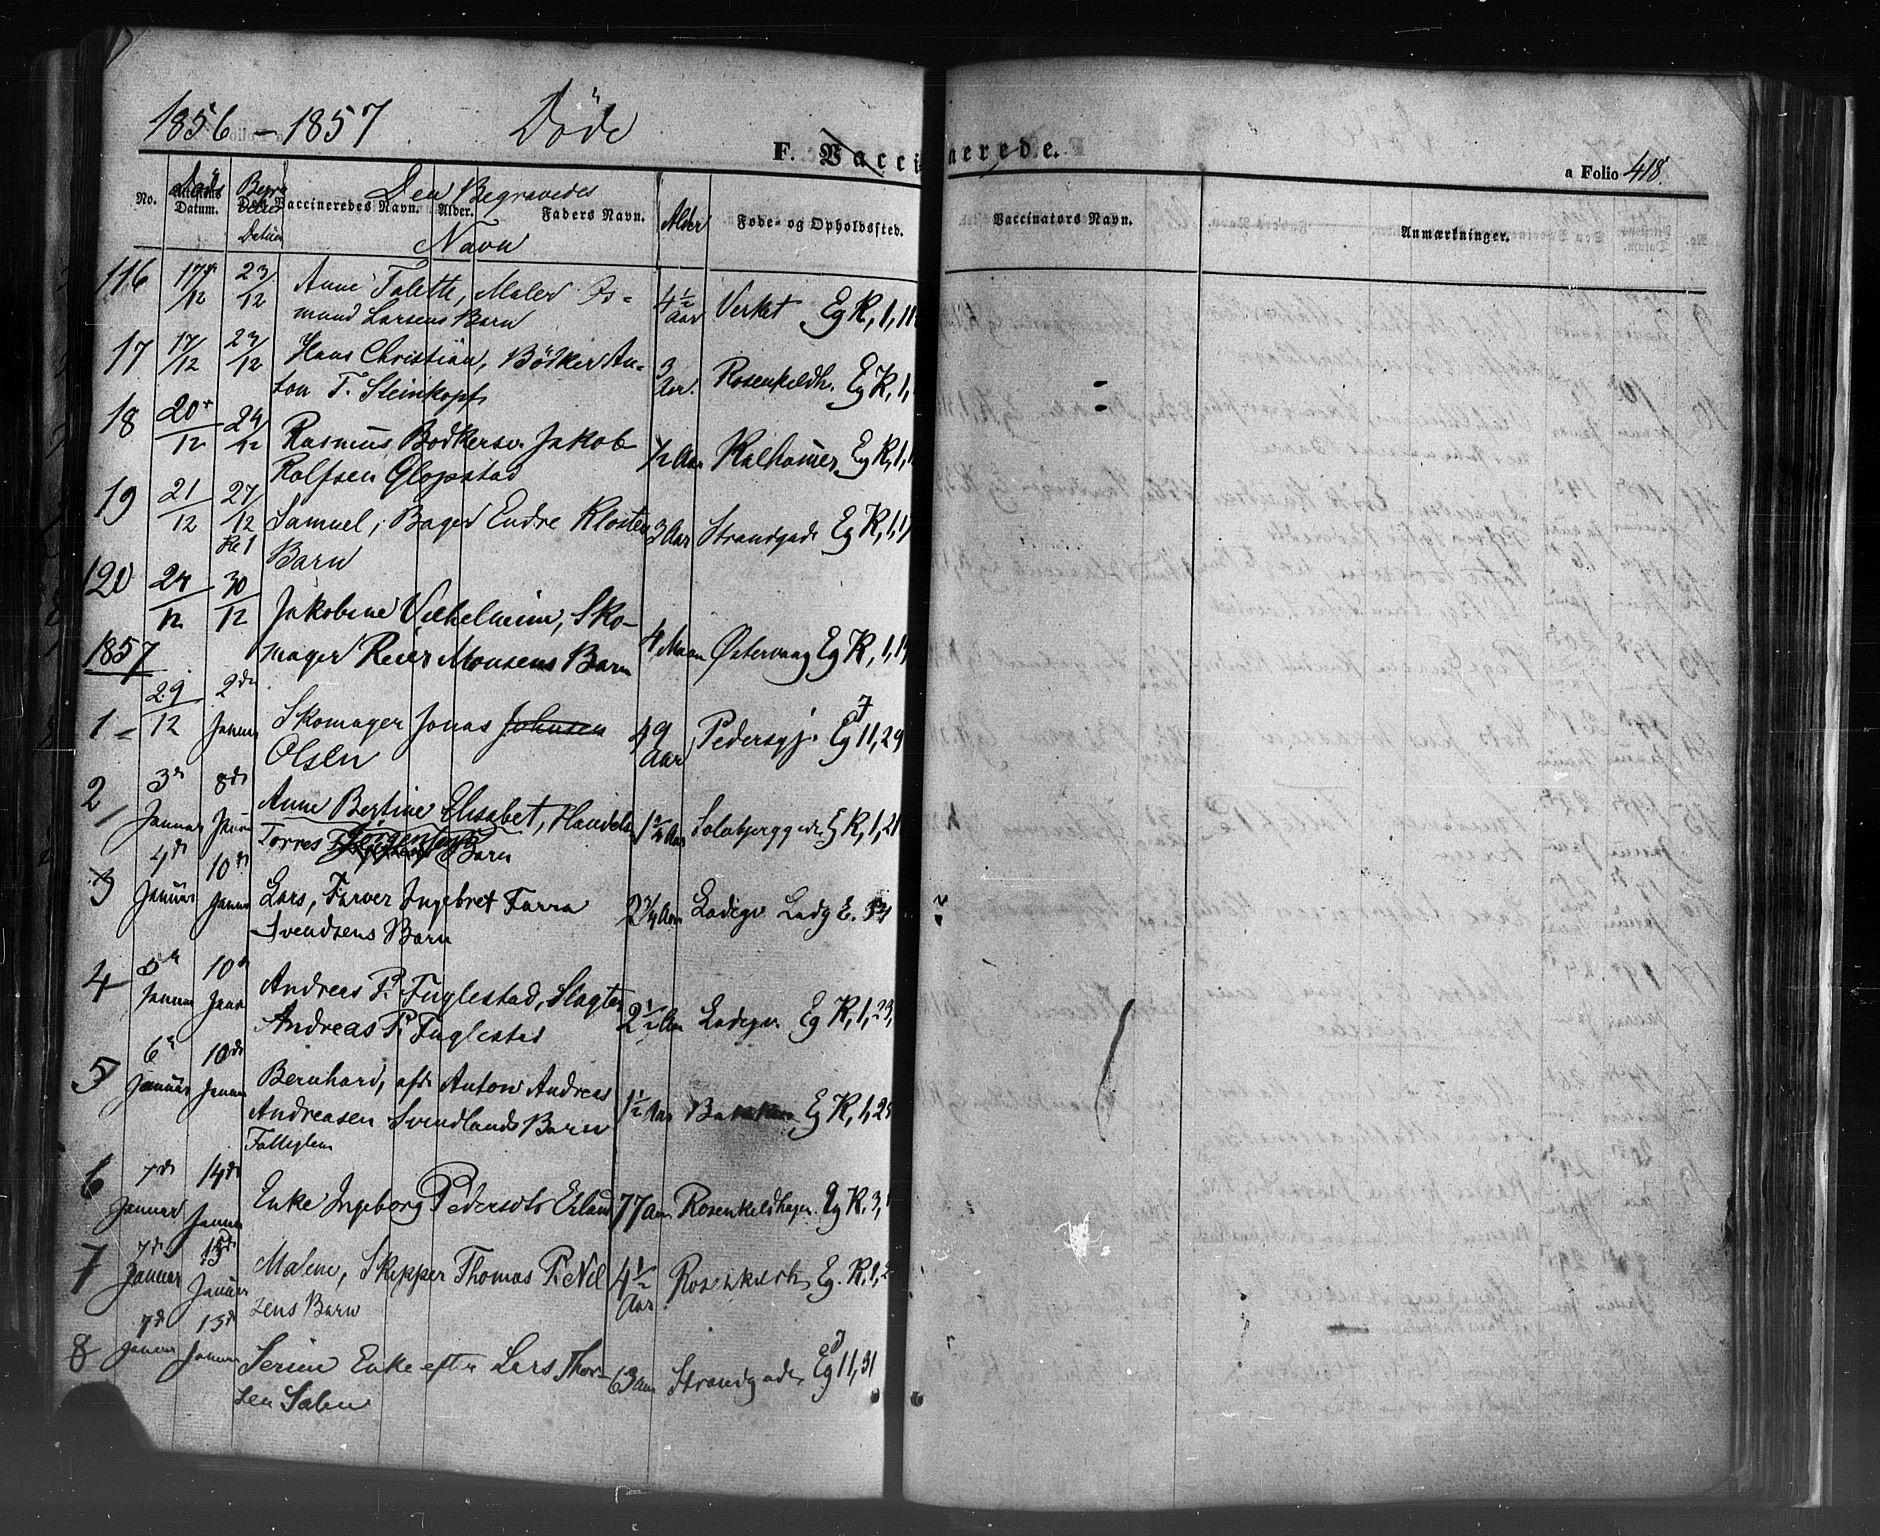 1856 - 1857 Döde
F. Vaccinerede.
a Folio 418.
No. Døds Datum. Begravelses Datum Den Begravedes Navn Alder Føde- og Opholdssted. Vaccinators Navn. Anmærkninger.
Den Vaccineredes Navn. Alder. Faders Navn.
116 17/12 23/12 Anne Talette, Maler Os-
mund Larsens Barn 4 1/2 Aar Verket Eg K, 1, 11
17 17/12 23/12 Hans Christian, Bödker An-
ton T. Steinkopf 3 Aar. Rosenkildh. Eg K, 1,
18 20/12 24/12 Rasmus Bödkersv. Jakob
Rolfsen Glopstad 1/2 Aar Kalhamer Eg K, 1, 1
19 21/12 27/12 Samuel, Bager Endre Kloster
Barn 3 Aar Strandgade Eg K, 1, 17
120 24/12 30/12 Jakobine Vilhelmine, Sko-
mager Reier Monsens Barn 4 Maan Østervaag Eg K, 1, 19
1857
1 29/12 2den Januar Skomager Jonas Johnsen
Olsen 49 Aar Pedersgj. Eg J 11, 29
2 3de Januar 8de Janu Anne Bertine Elisabet, Handels
Torres Barn 1 1/4 Aar Solabjerggade E K, 1, 21
3 4de Januar 10de Januar Lars, Farver Ingebret Tarra
Svendsens Barn 2 3/4 Aar Ladegr Ladg E. 54
4 5te Januar 10de Janr Andreas P. Fuglestad, Slagter
Andreas P. Fuglestad 2 1/2 Aar Ladegr. Eg K, 1, 23,
5 6te Januar 10de Januar Bernhard, afdr Anton Andreas
Andreasen Svindlands Barn 1 1/2 Aar Eg K, 1, 25
6 7de Januar 14de Januar Enke Ingeborg Pedersdtr Eiland 77 Aar Rosenkildhagen. Eg K, 3,
7 7de Januar 15de Januar Malene, Skipper Thomas P. Nil
sens Barn 4 1/2 Aar Rosenkildh. Eg. K, 1, 2
8 7de Januar 13de Januar Serine Enke efter Lars Thor-
sen Salen 63 Aar Strandgade Eg J 11, 31